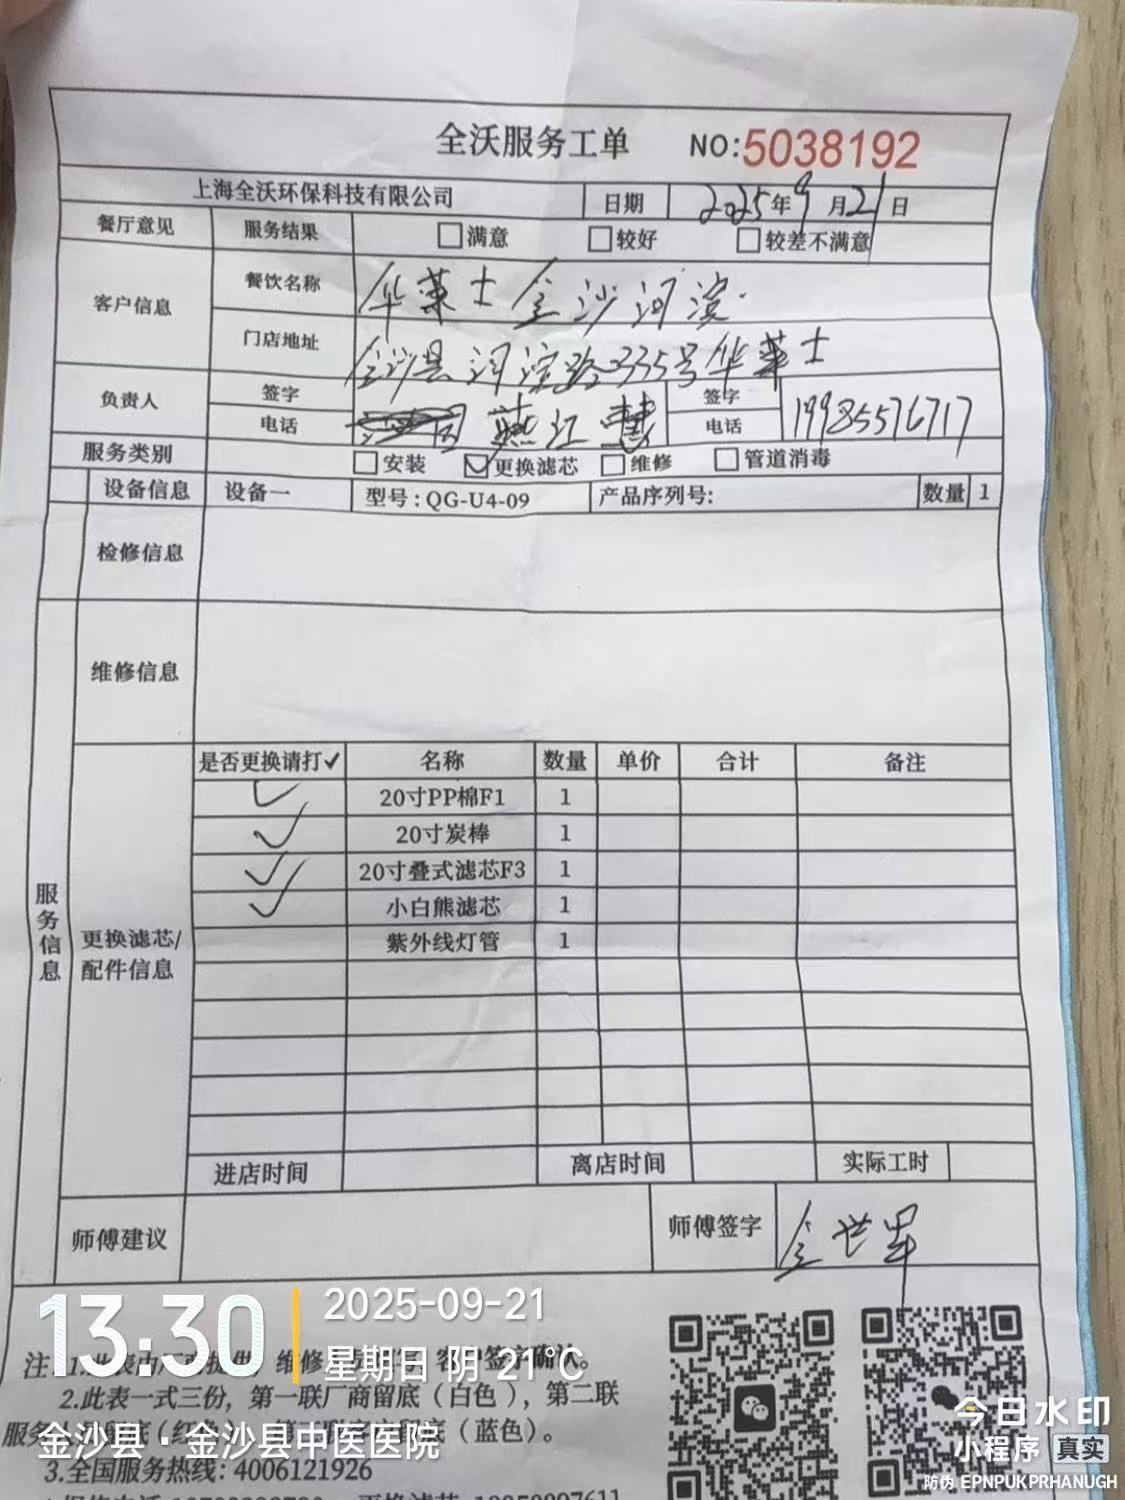 全沃服务工单 NO:5038192
上海全沃环保科技有限公司 日期 2025年9月21日
餐厅意见 服务结果 满意 较好 较差不满意
客户信息 餐饮名称 华莱士金沙河滨
门店地址 金沙县河滨路335号华莱士
负责人 签字 签字
电话 燕江慧 电话 19985576717
服务类别 安装 更换滤芯 维修 管道消毒
设备信息 设备一 型号:QG-U4-09 产品序列号: 数量 1
检修信息
维修信息
服务信息
更换滤芯/配件信息
是否更换请打✓ 名称 数量 单价 合计 备注
✓ 20寸PP棉F1 1
✓ 20寸炭棒 1
✓ 20寸叠式滤芯F3 1
✓ 小白熊滤芯 1
紫外线灯管 1
进店时间 离店时间 实际工时
师傅建议 师傅签字 金世军
13:30 2025-09-21
星期日 阴 21℃
2.此表一式三份，第一联厂商留底（白色），第二联
（蓝色）。
金沙县·金沙县中医医院
3.全国服务热线: 4006121926
今日水印
小程序 真实
防伪 EPNPUKPRHANUGH